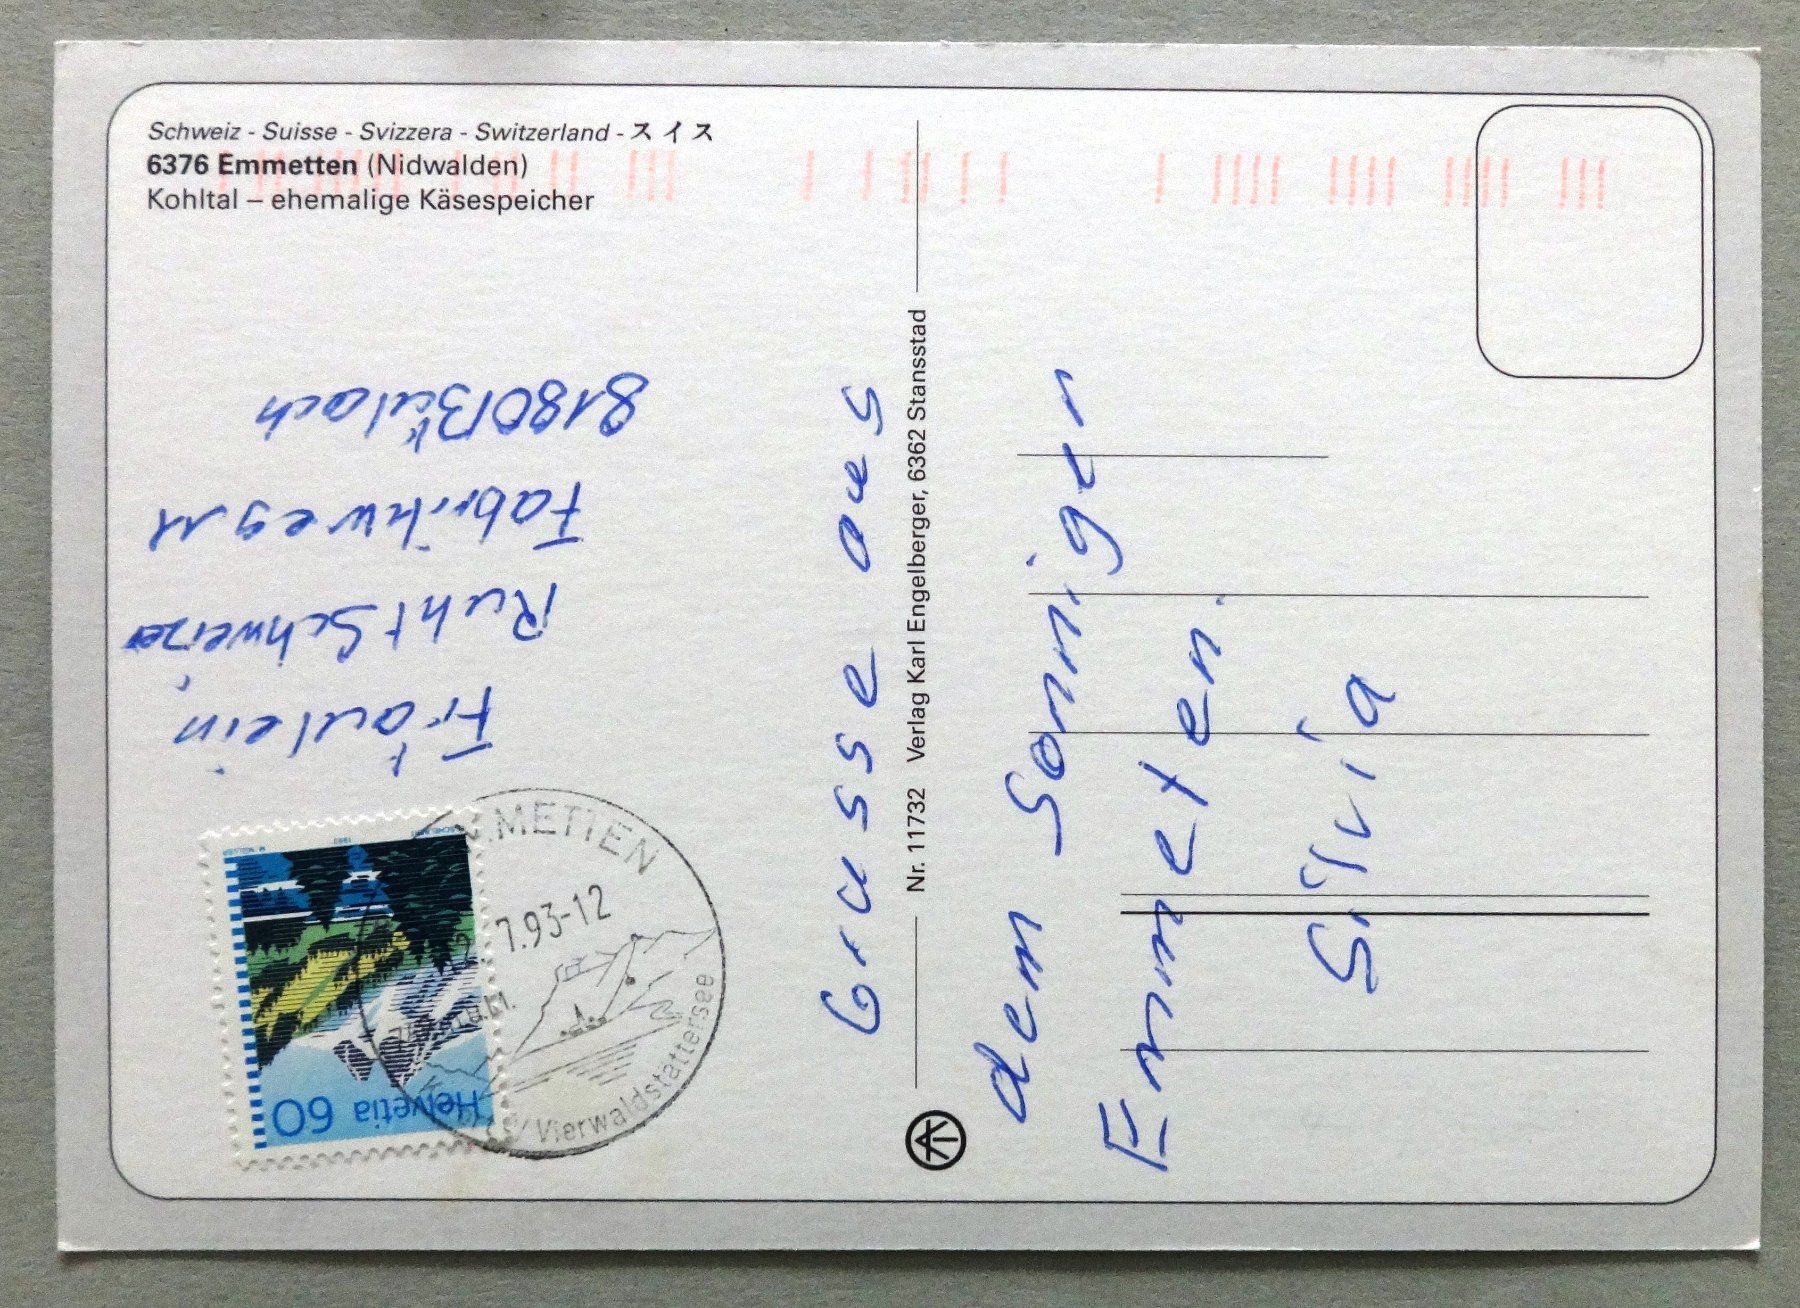 Schweiz - Suisse - Svizzera - Switzerland - スイス
6376 Emmetten (Nidwalden)
Kohltal – ehemalige Käsespeicher
Fräulein
Ruht Schweizer
Fabrikweg 11
8180 Bülach
Grusse aus
dem Sonnigen
Emmeten.
Silvia
Nr. 11732 Verlag Karl Engelberger, 6362 Stansstad
Helvetia 60
M. MÜLLER 1993
EMMETTEN
7.93-12
Vierwaldstättersee